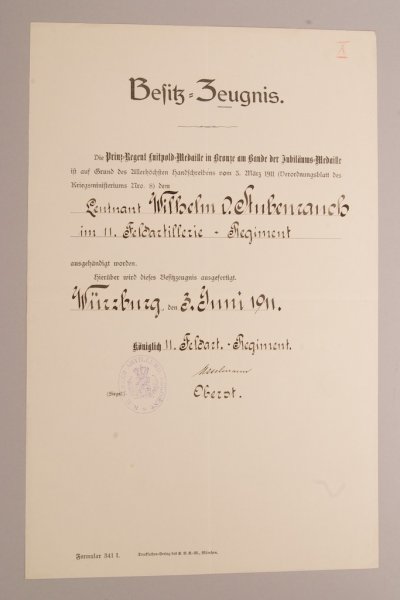 Besitz=Zeugnis.
Die Prinz-Regent Luitpold-Medaille in Bronze am Bande der Jubiläums-Medaille
ist auf Grund des Allerhöchsten Handschreibens vom 5. März 1911 (Verordnungsblatt des
Kriegsministeriums Nro. 8) dem
Leutnant Wilhelm v. Stubenrauch
im 11. Feldartillerie-Regiment
ausgehändigt worden.
Hierüber wird dieses Besitzzeugnis ausgefertigt.
Würzburg, den 3. Juni 1911.
Königlich 11. Feldart.-Regiment.
(Siegel.)
Oberst.
Formular 341 I.